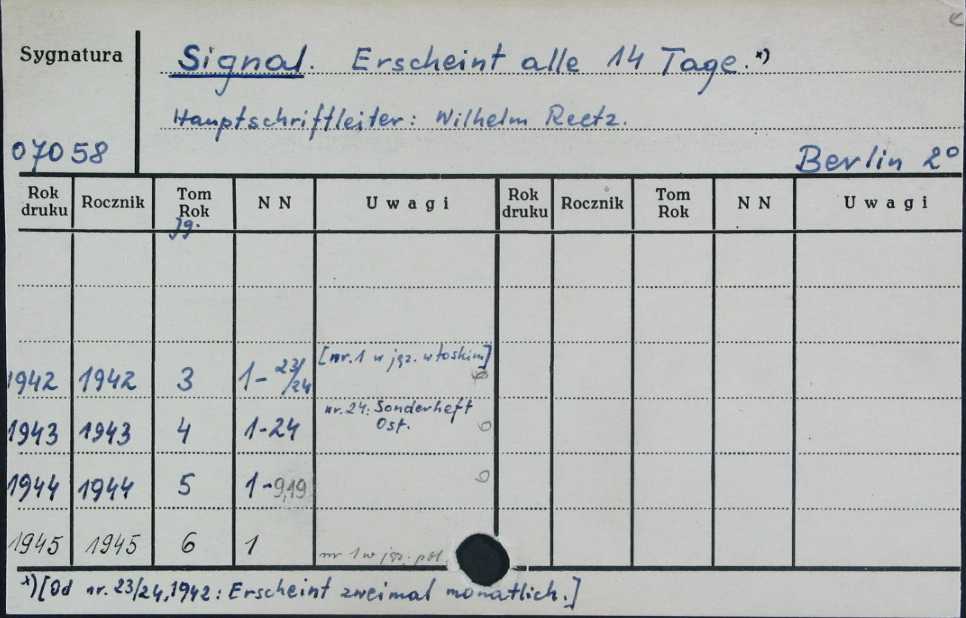 Sygnatura
Signal. Erscheint alle 14 Tage. x)
Hauptschriftleiter: Wilhelm Reetz.
07058
Berlin 2°
Rok druku Rocznik Tom Rok NN Uwagi Rok druku Rocznik Tom Rok NN Uwagi
Jg.
[nr. 1 w jęz. włoskim]
1942 1942 3 1-23/24
nr. 24: Sonderheft
1943 1943 4 1-24 Ost.
1944 1944 5 1-9,19
1945 1945 6 1 nr 1 w jęz. pol.
x) [Od nr. 23/24, 1942: Erscheint zweimal monatlich.]